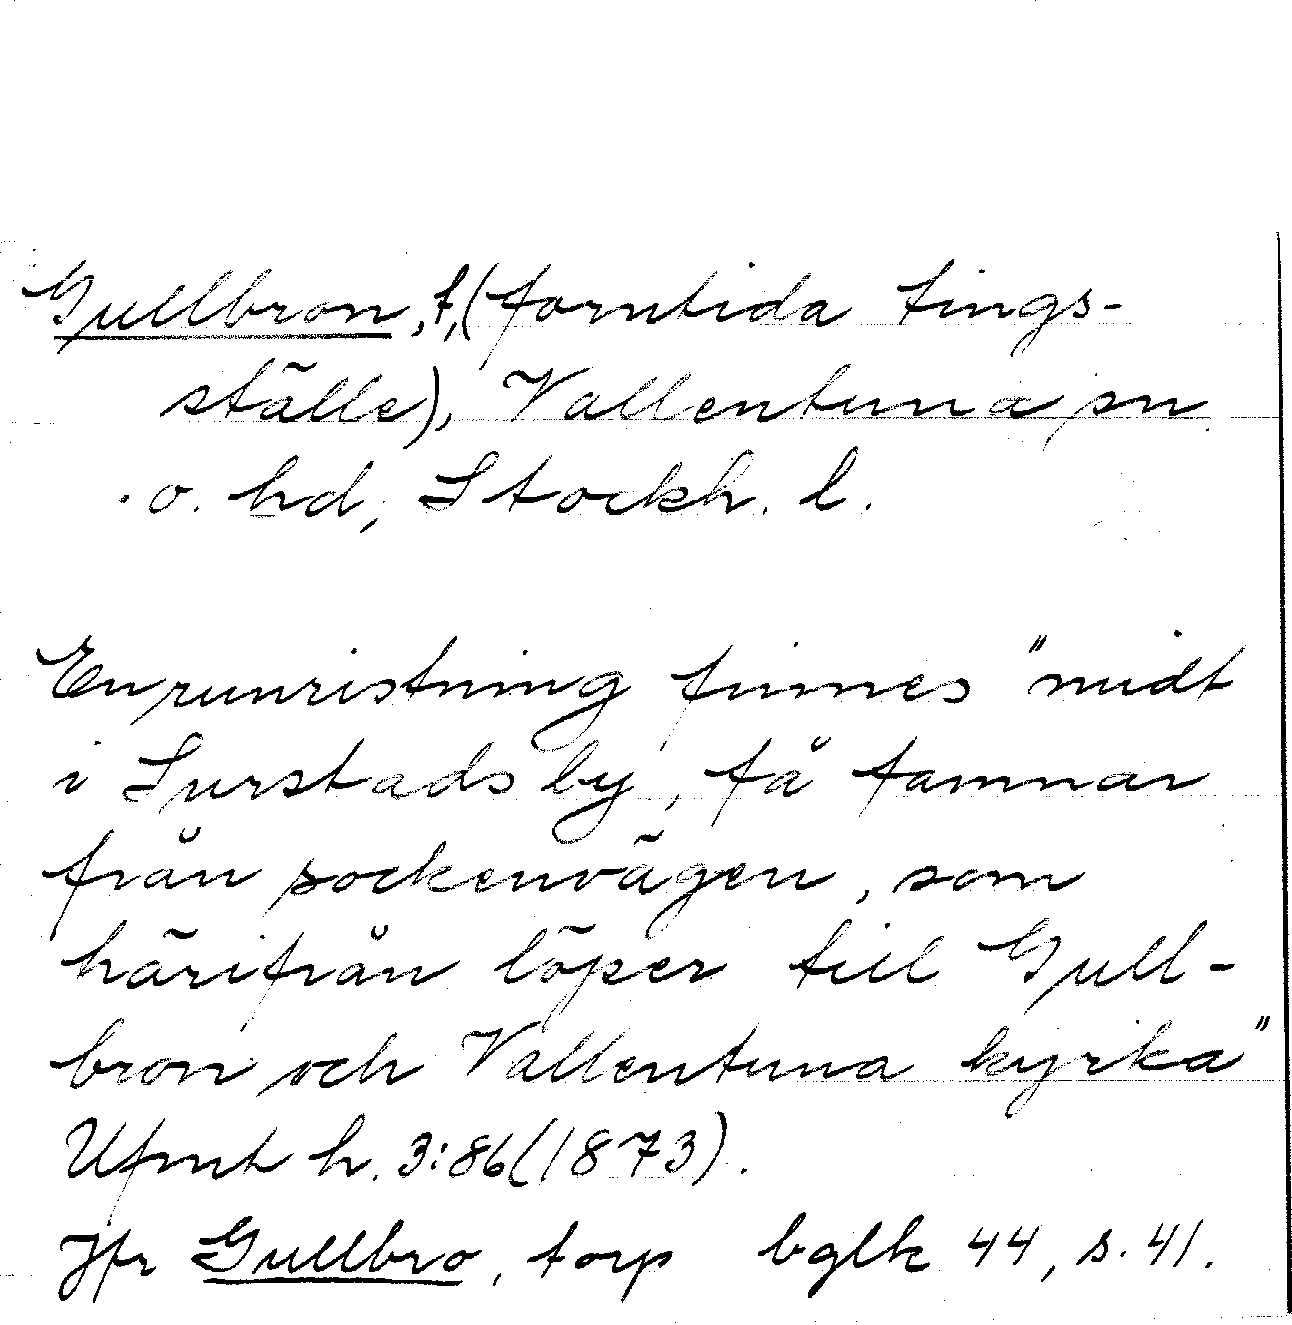 Gullbron, f, (forntida tings-
ställe), Vallentuna sn
o. hd, Stockh. l.
En runristning finnes "midt
i Lurstads by, få famnar
från sockenvägen, som
härifrån löper till Gull-
bron och Vallentuna kyrka"
Ufmt h. 3:86 (1873).
Jfr Gullbro, torp bglk 44, s. 41.